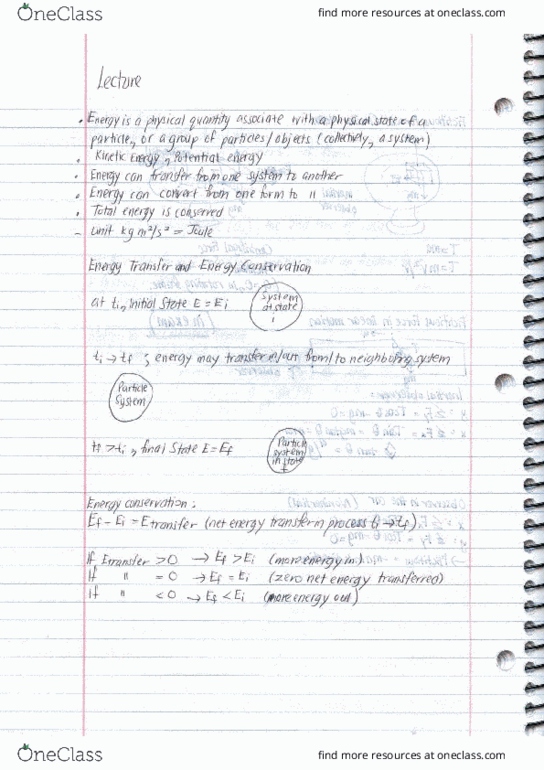 OneClass
find more resources at oneclass.com
Lecture
. Energy is a physical quantity associate with a physical state of a
particle, or a group of particles/objects (collectively, a system)
. Kinetic Energy, Potential energy
. Energy can transfer from one system to another
. Energy can convert from one form to "
. Total energy is conserved
- unit kg m²/s² = Joule
Energy Transfer and Energy Conservation
at ti, initial State E = Ei
System
at state
i
ti → tf ; energy may transfer in/out from/to neighboring system
Particle
System
tf > ti, final State E = Ef
Particle
system
in state
f
Energy conservation:
Ef - Ei = Etransfer (net energy transfer in process ti → tf)
If Etransfer > 0 → Ef > Ei (more energy in)
If " = 0 → Ef = Ei (zero net energy transferred)
if " < 0 → Ef < Ei (more energy out)
OneClass
find more resources at oneclass.com